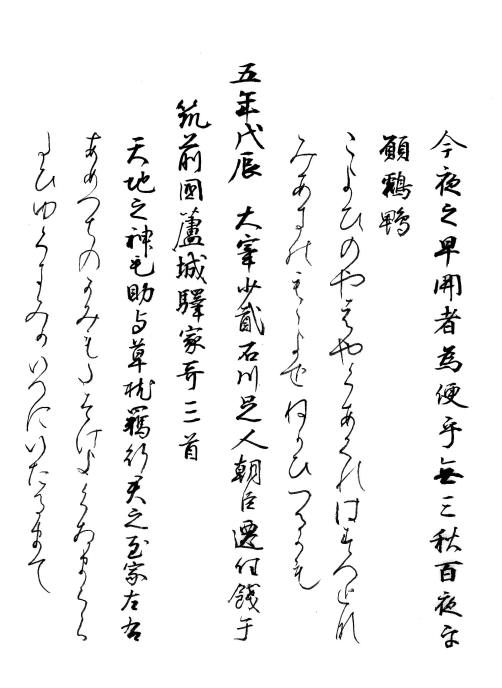 今夜之早開者為便乎無三秋百夜乎
願鶴鴨
こよひのやはやくあくれはすへをな
みあきのもゝよをねかひつるかも
五年戊辰　大宰少貳石川足人朝臣遷任餞于
筑前國蘆城驛家哥三首
天地之神毛助与草枕羈行君之至家左右
あめつちのかみもたすけよくさまくら
たひゆくきみかいへにいたるまて